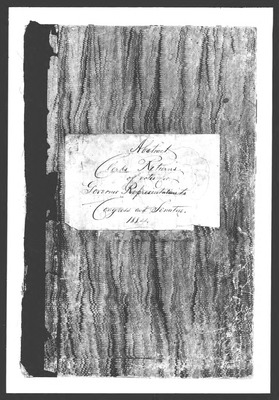 Abstract
Clerks Returns
of votes for
Governor Representatives to
Congress and Senators.